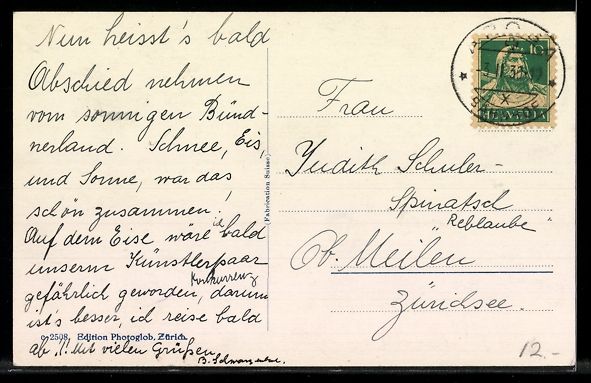 Nun heisst's bald
Abschied nehmen
vom sonnigen Bünd-
nerland. Schnee, Eis,
und Sonne, war das
schön zusammen!
Auf dem Eise wäre ich bald
unserm Künstlerpaar
Konkurrenz
gefährlich geworden, darum
ist's besser, ich reise bald
ab,!! Mit vielen Grüßen
(Fabrication Suisse)
2508 Edition Photoglob, Zürich
10
HELVETIA
Frau
Judith Schuler-
Spinatsch
"Reblaube"
Ob. Meilen
Zürichsee.
12.-